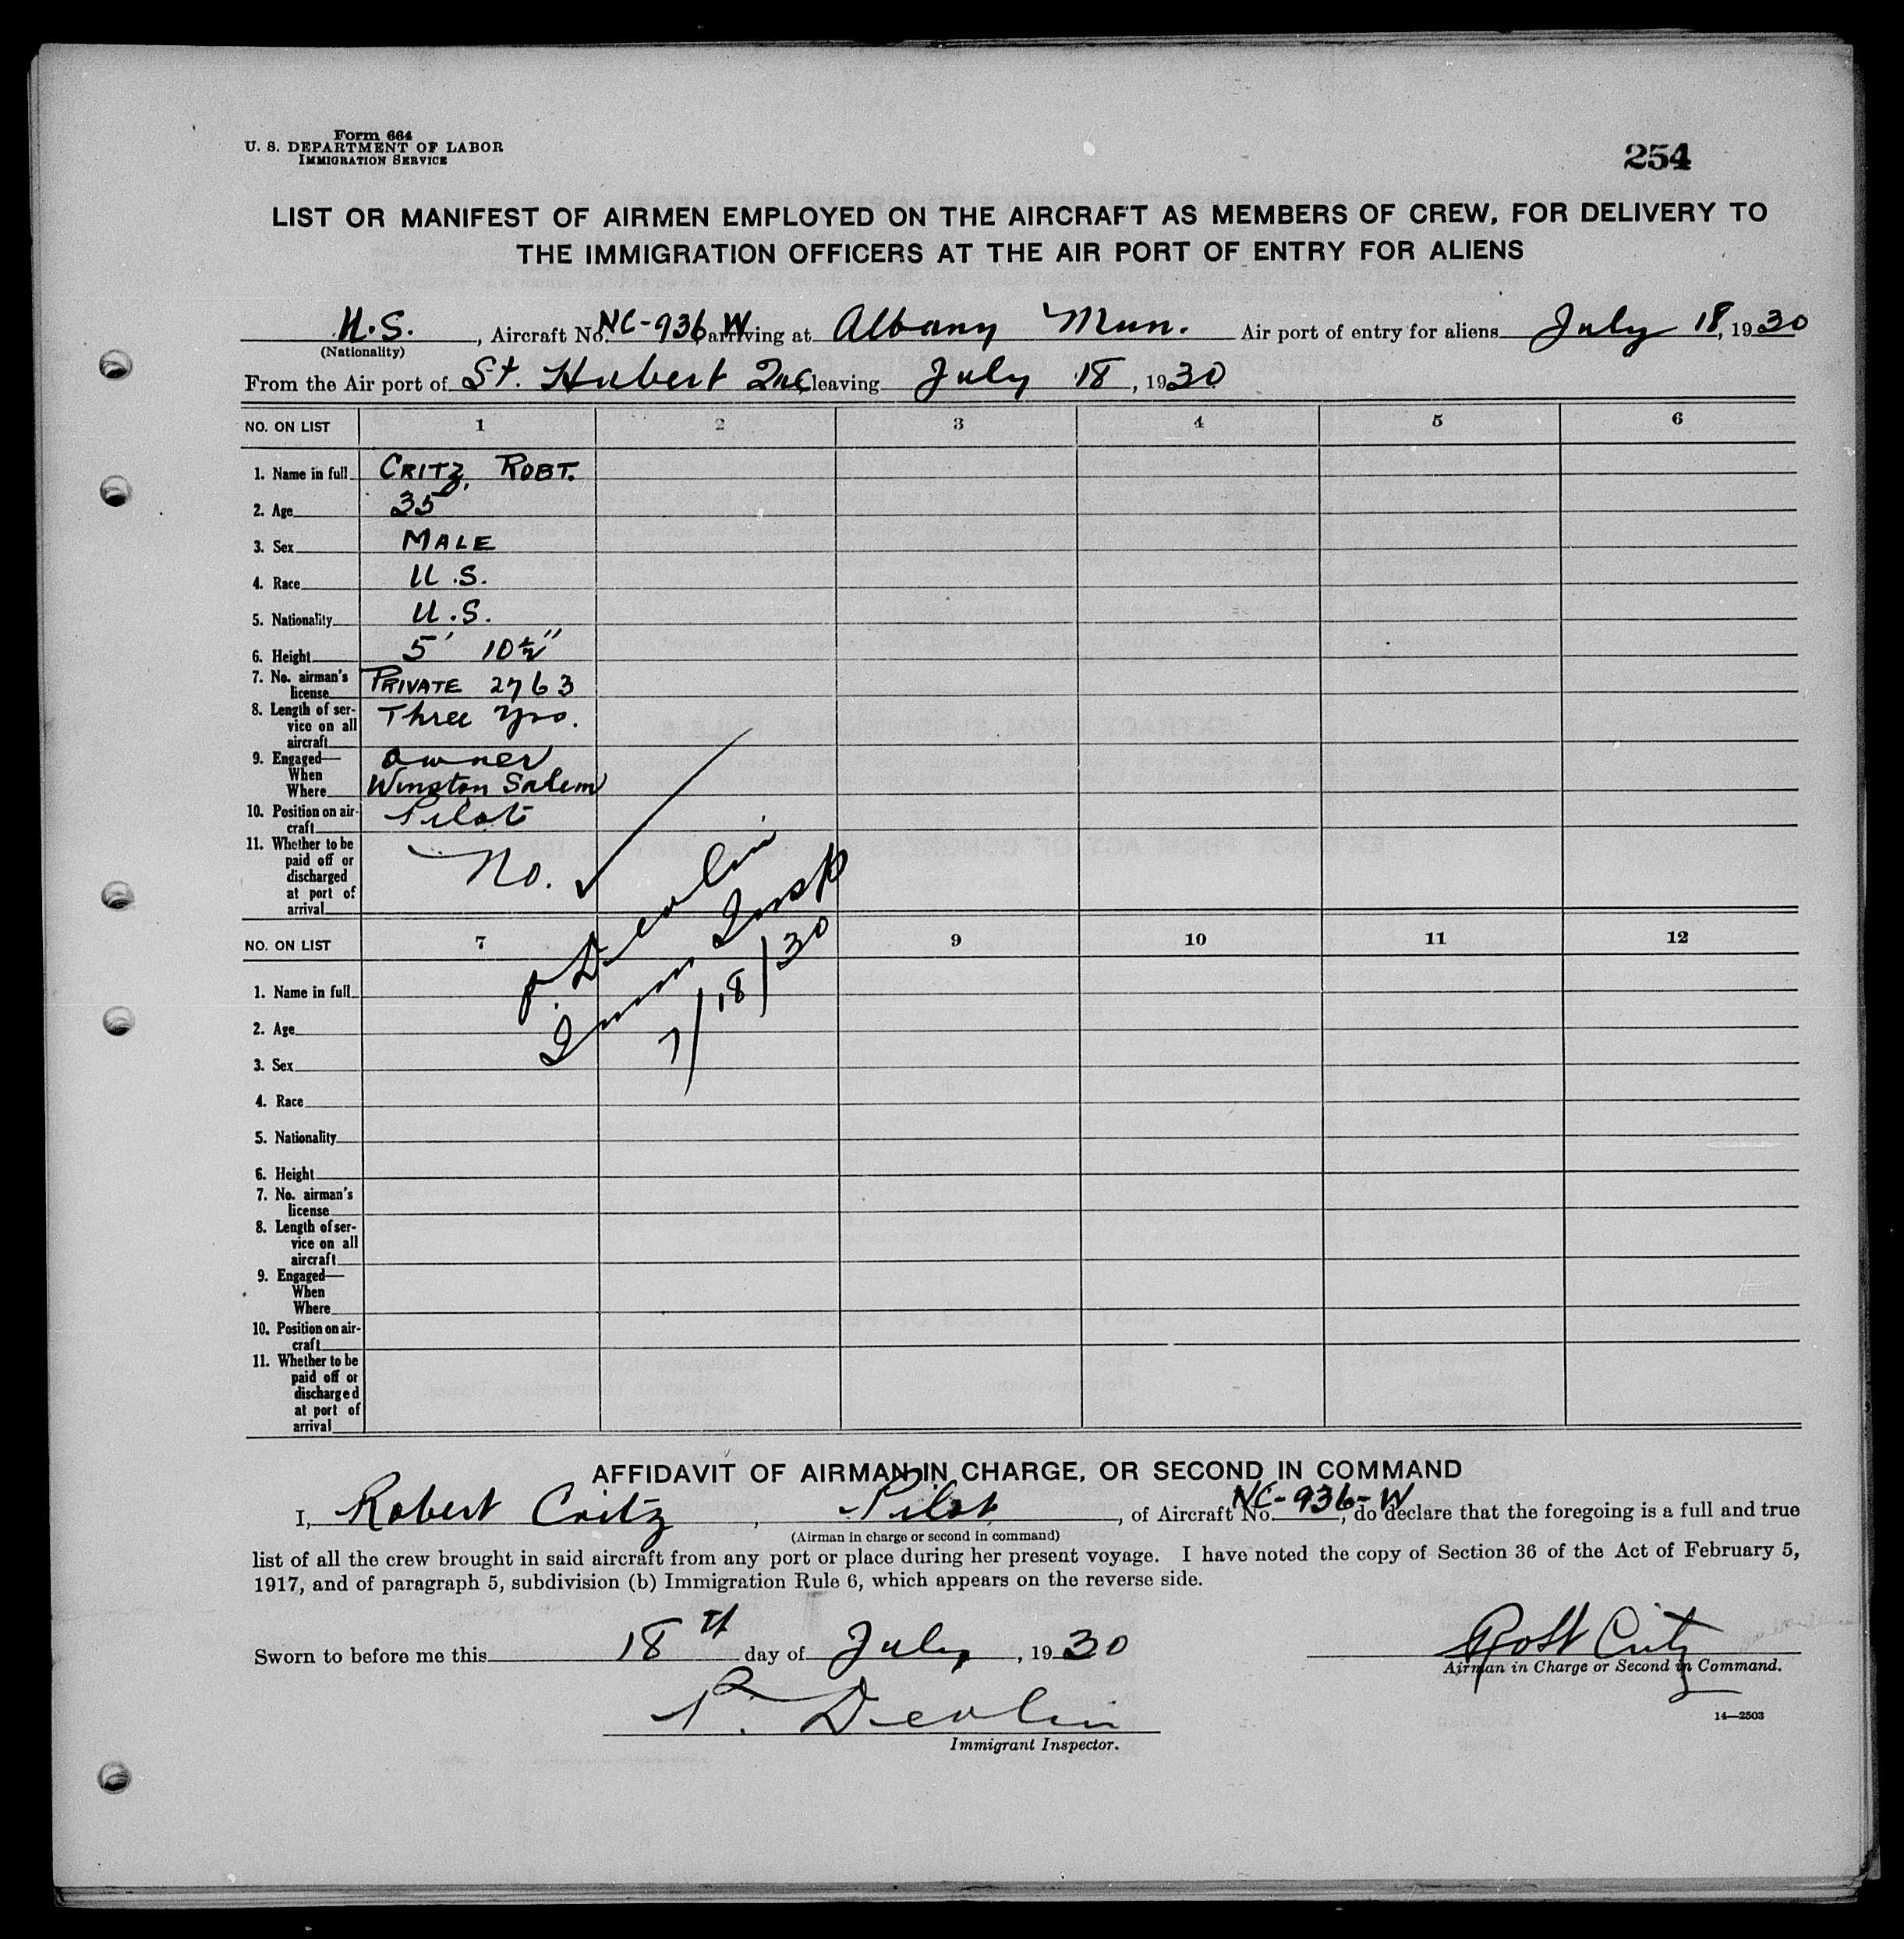 Form 664
U. S. DEPARTMENT OF LABOR
IMMIGRATION SERVICE
254
LIST OR MANIFEST OF AIRMEN EMPLOYED ON THE AIRCRAFT AS MEMBERS OF CREW, FOR DELIVERY TO
THE IMMIGRATION OFFICERS AT THE AIR PORT OF ENTRY FOR ALIENS
U.S., Aircraft No. NC-936W arriving at Albany Mun. Air port of entry for aliens July 18, 1930
(Nationality)
From the Air port of St. Hubert Que, leaving July 18, 1930
NO. ON LIST 1 2 3 4 5 6
1. Name in full CRITZ, ROBT.
2. Age 35
3. Sex MALE
4. Race U.S.
5. Nationality U.S.
6. Height 5' 10½"
7. No. airman's
license PRIVATE 2763
8. Length of ser-
vice on all
aircraft Three yrs.
9. Engaged— owner
When
Where Winston Salem
10. Position on air-
craft Pilot
11. Whether to be
paid off or
discharged
at port of
arrival No. ✓
P. Devlin
Imm Insp
7/18/30
NO. ON LIST 7 9 10 11 12
1. Name in full
2. Age
3. Sex
4. Race
5. Nationality
6. Height
7. No. airman's
license
8. Length of ser-
vice on all
aircraft
9. Engaged—
When
Where
10. Position on air-
craft
11. Whether to be
paid off or
discharged
at port of
arrival
AFFIDAVIT OF AIRMAN IN CHARGE, OR SECOND IN COMMAND
I, Robert Critz, Pilot, of Aircraft No. NC-936-W, do declare that the foregoing is a full and true
(Airman in charge or second in command)
list of all the crew brought in said aircraft from any port or place during her present voyage. I have noted the copy of Section 36 of the Act of February 5,
1917, and of paragraph 5, subdivision (b) Immigration Rule 6, which appears on the reverse side.
Sworn to before me this 18th day of July, 1930
Robt Critz
Airman in Charge or Second in Command.
P. Devlin
Immigrant Inspector.
14—2503